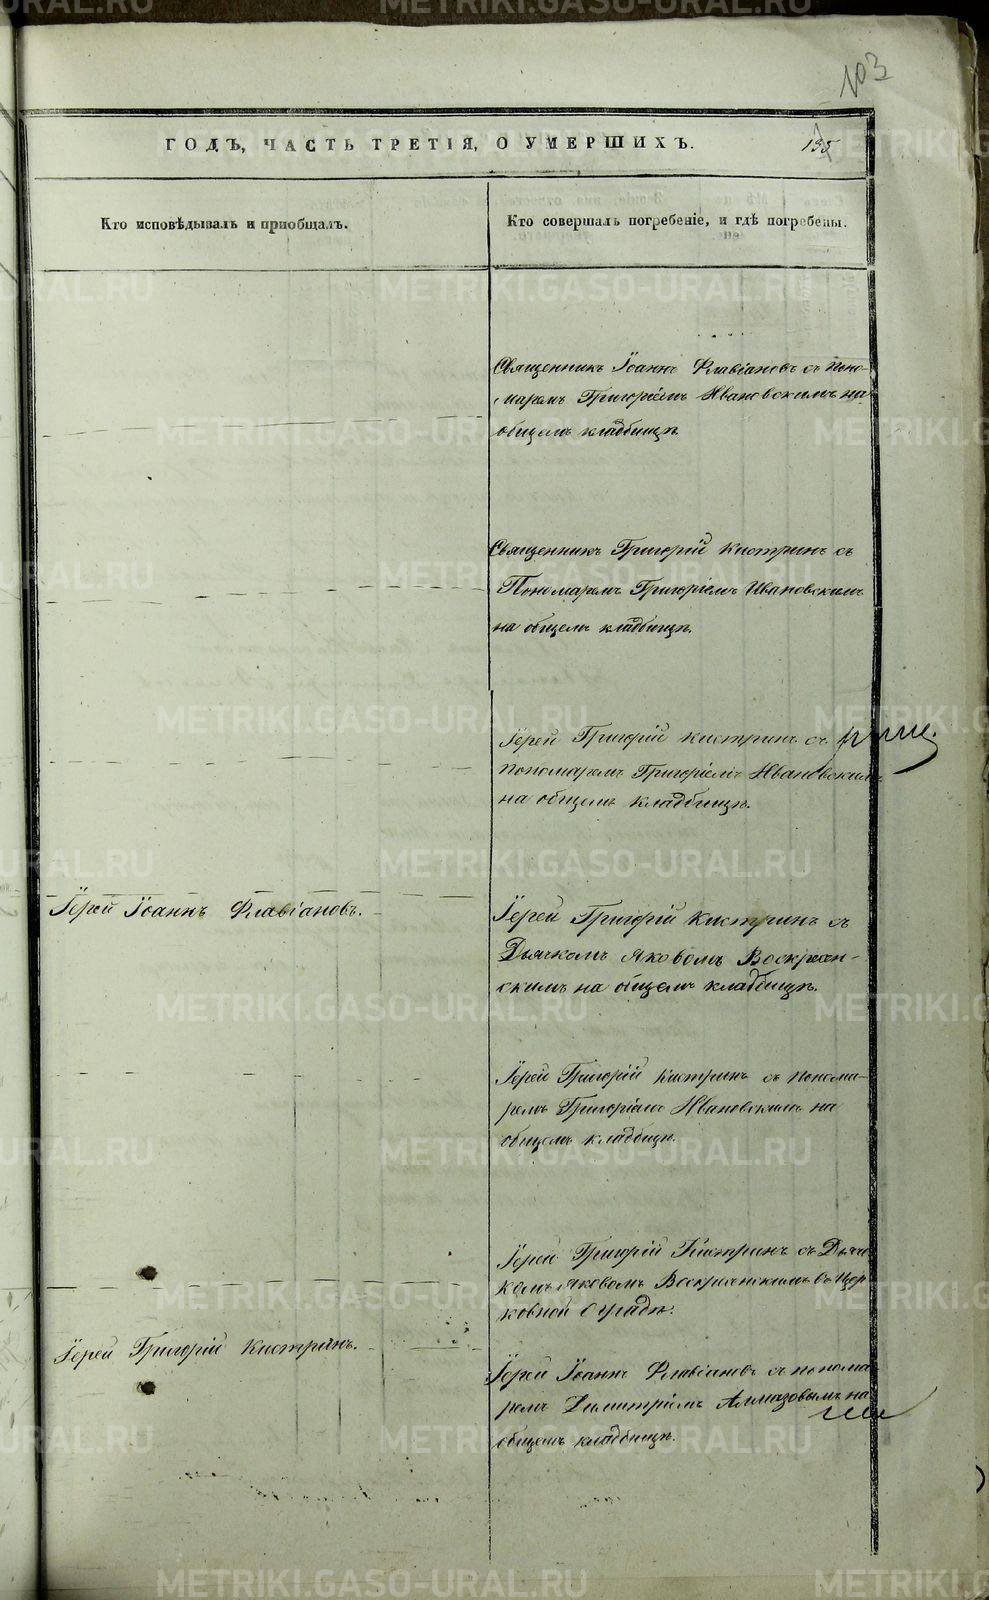 103
ГОДЪ, ЧАСТЬ ТРЕТІЯ, О УМЕРШИХЪ.
Кто исповѣдывалъ и приобщалъ.
Кто совершалъ погребеніе, и гдѣ погребены.
Священникъ Іоаннъ Флавіановъ съ Поно-
маремъ Григоріемъ Ивановскимъ на
общемъ кладбищѣ.
Священникъ Григорій Кистринъ съ
Пономаремъ Григоріемъ Ивановскимъ
на общемъ кладбищѣ.
Іерей Григорій Кистринъ съ
Пономаремъ Григоріемъ Ивановскимъ
на общемъ кладбищѣ.
Іерей Іоаннъ Флавіановъ.
Іерей Григорій Кистринъ съ
Дьячкомъ Яковомъ Воскресен-
скимъ на общемъ кладбищѣ.
Іерей Григорій Кистринъ съ понома-
ремъ Григоріемъ Ивановскимъ на
общемъ кладбищѣ.
Іерей Григорій Кистринъ съ Дьяч-
комъ Яковомъ Воскресенскимъ въ Цер
ковной оградѣ.
Іерей Григорій Кистринъ.
Іерей Іоаннъ Флавіановъ съ понома
ремъ Димитріемъ Алмазовымъ на
общемъ кладбищѣ.
METRIKI.GASO-URAL.RU